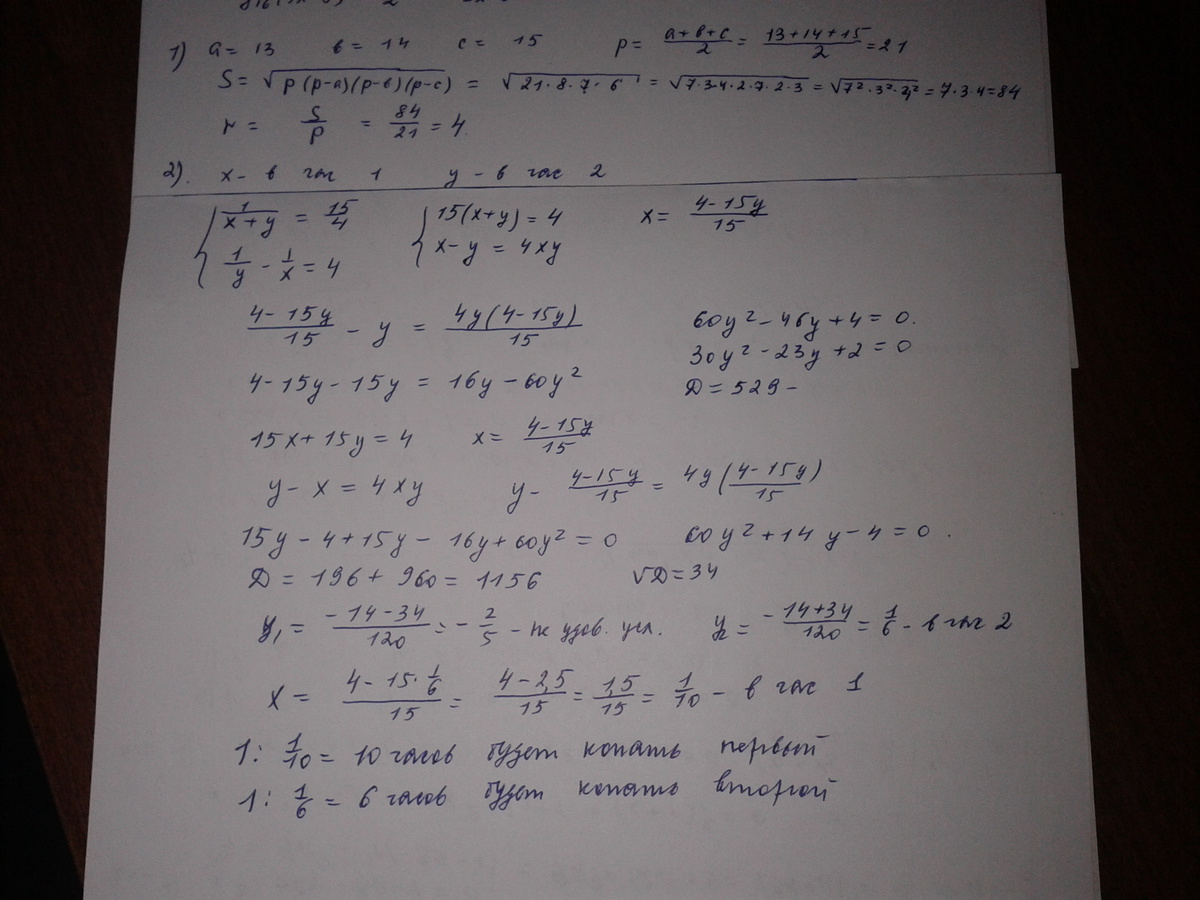 1) a = 13 в = 14 c = 15 p = \frac{a+в+c}{2} = \frac{13+14+15}{2} = 21
S = √(p(p-a)(p-в)(p-c)) = √(21·8·7·6) = √(7·3·4·2·7·2·3) = √(7²·3²·4²) = 7·3·4=84
r = \frac{S}{p} = \frac{84}{21} = 4.
2). x - в час 1 y - в час 2
{ \frac{1}{x+y} = \frac{15}{4} { 15(x+y) = 4 x = \frac{4-15y}{15}
\frac{1}{y} - \frac{1}{x} = 4 x-y = 4xy
\frac{4-15y}{15} - y = \frac{4y(4-15y)}{15} 60y² - 46y + 4 = 0.
30y² - 23y + 2 = 0
4-15y-15y = 16y-60y² D = 529 -
15x + 15y = 4 x = \frac{4-15y}{15}
y - x = 4xy y - \frac{4-15y}{15} = 4y(\frac{4-15y}{15})
15y - 4 + 15y - 16y + 60y² = 0 60y² + 14y - 4 = 0.
D = 196 + 960 = 1156 √D = 34
y₁ = \frac{-14-34}{120} = -\frac{2}{5} - не удов. усл. y₂ = \frac{-14+34}{120} = \frac{1}{6} - в час 2
x = \frac{4-15·\frac{1}{6}}{15} = \frac{4-2,5}{15} = \frac{1,5}{15} = \frac{1}{10} - в час 1
1 : \frac{1}{10} = 10 часов будет копать первый
1 : \frac{1}{6} = 6 часов будет копать второй